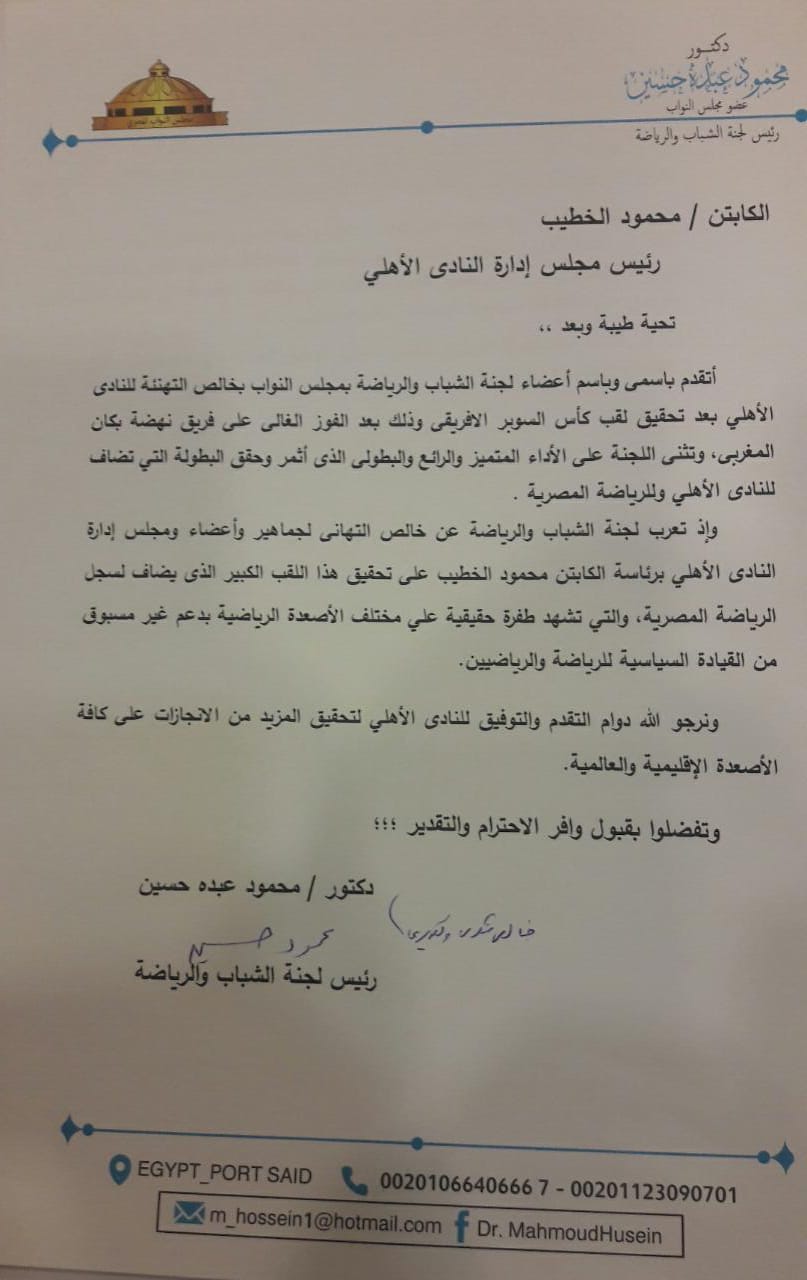 دكتور
محمود عبده حسين
عضو مجلس النواب
رئيس لجنة الشباب والرياضة
مجلس النواب المصري
الكابتن / محمود الخطيب
رئيس مجلس إدارة النادى الأهلي
تحية طيبة وبعد ،،
أتقدم باسمى وباسم أعضاء لجنة الشباب والرياضة بمجلس النواب بخالص التهنئة للنادى
الأهلي بعد تحقيق لقب كأس السوبر الافريقى وذلك بعد الفوز الغالى على فريق نهضة بكان
المغربى، وتثنى اللجنة على الأداء المتميز والرائع والبطولى الذى أثمر وحقق البطولة التي تضاف
للنادى الأهلي وللرياضة المصرية .
وإذ تعرب لجنة الشباب والرياضة عن خالص التهانى لجماهير وأعضاء ومجلس إدارة
النادى الأهلي برئاسة الكابتن محمود الخطيب على تحقيق هذا اللقب الكبير الذى يضاف لسجل
الرياضة المصرية، والتي تشهد طفرة حقيقية علي مختلف الأصعدة الرياضية بدعم غير مسبوق
من القيادة السياسية للرياضة والرياضيين.
ونرجو الله دوام التقدم والتوفيق للنادى الأهلي لتحقيق المزيد من الانجازات على كافة
الأصعدة الإقليمية والعالمية.
وتفضلوا بقبول وافر الاحترام والتقدير ؛؛؛
دكتور / محمود عبده حسين
محمود حسين
رئيس لجنة الشباب والرياضة
EGYPT_PORT SAID 0020106640666 7 - 00201123090701
m_hossein1@hotmail.com Dr. MahmoudHusein